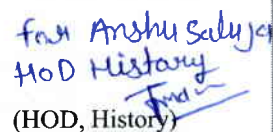 for Anshu Saluja
HOD History
(HOD, History)